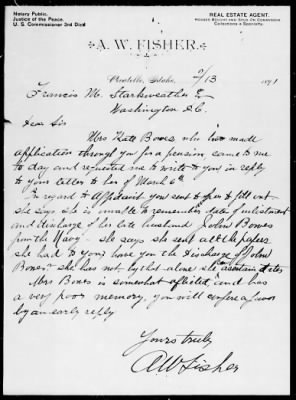 Notary Public.
Justice of the Peace.
U. S. Commissioner 3rd Dist
REAL ESTATE AGENT.
HOUSES BOUGHT AND SOLD ON COMMISSION
Collections a Specialty.
A. W. FISHER.
Pocatello, Idaho, 3/13 1891
Francis M. Starkweather Esq
Washington D.C.
Dear Sir
Mrs Kate Bowes who has made
application through you for a pension, came to me
to day and requested me to write to you in reply
to your letter to her of March 6th
In regard to Affidavit you sent to her to fill out
she says she is unable to remember date of enlistment
and discharge of her late husband John Bowes
from the Navy - she says she sent all the papers
she had to you, have you the Discharge of John
Bowes? she has not, by that alone she can ascertain dates
Mrs Bowes is somewhat afflicted, and has
a very poor memory, you will confer a favor
by an early reply
Yours truly
A W Fisher